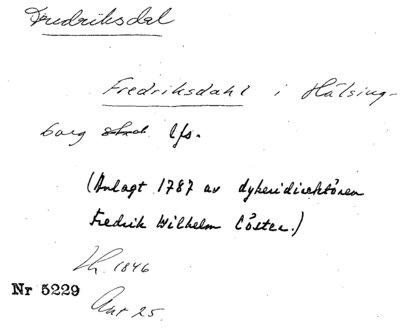 Fredriksdal
Fredriksdahl i Hälsing-
borg stad lfs.
(Anlagt 1787 av dykeridirektören
Fredrik Wilhelm Cöster.)
Th. 1846
Nr 5229
Ant 25.